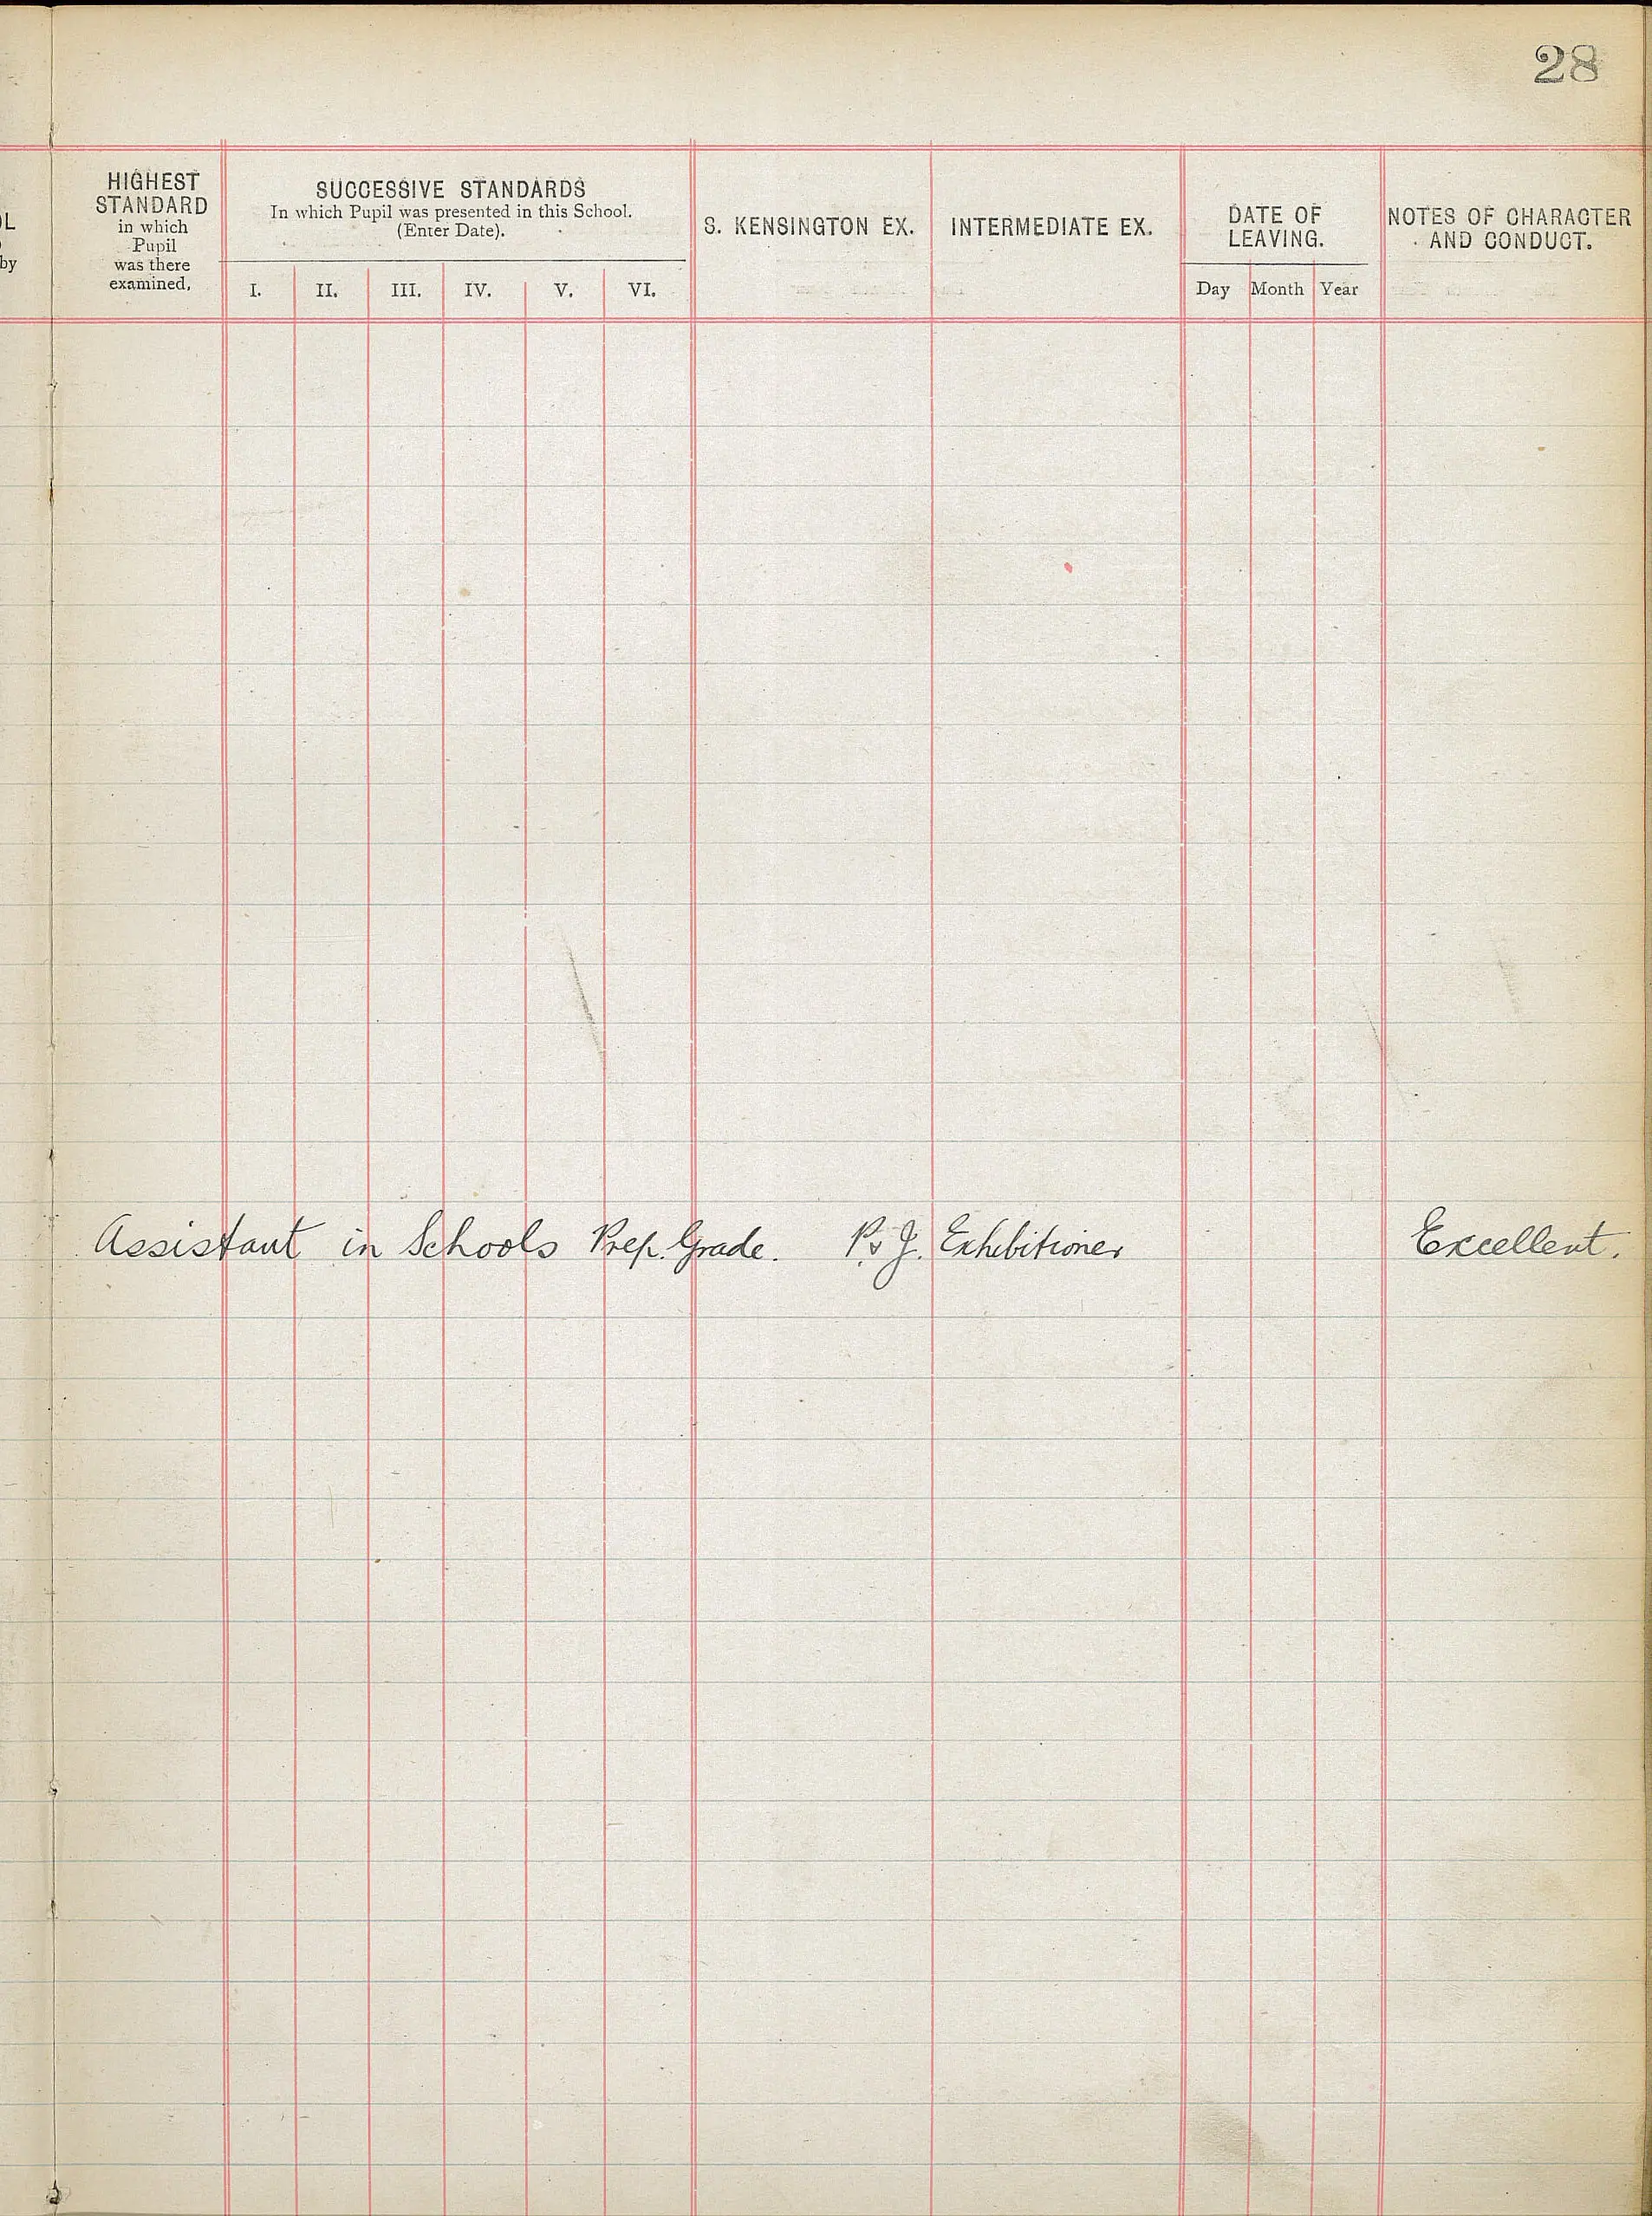 28
OL
by
HIGHEST
STANDARD
in which
Pupil
was there
examined.
SUCCESSIVE STANDARDS
In which Pupil was presented in this School.
(Enter Date).
I. II. III. IV. V. VI.
S. KENSINGTON EX.
INTERMEDIATE EX.
DATE OF
LEAVING.
Day Month Year
NOTES OF CHARACTER
AND CONDUCT.
Assistant in Schools Prep. Grade. P. & J. Exhibitioner Excellent.